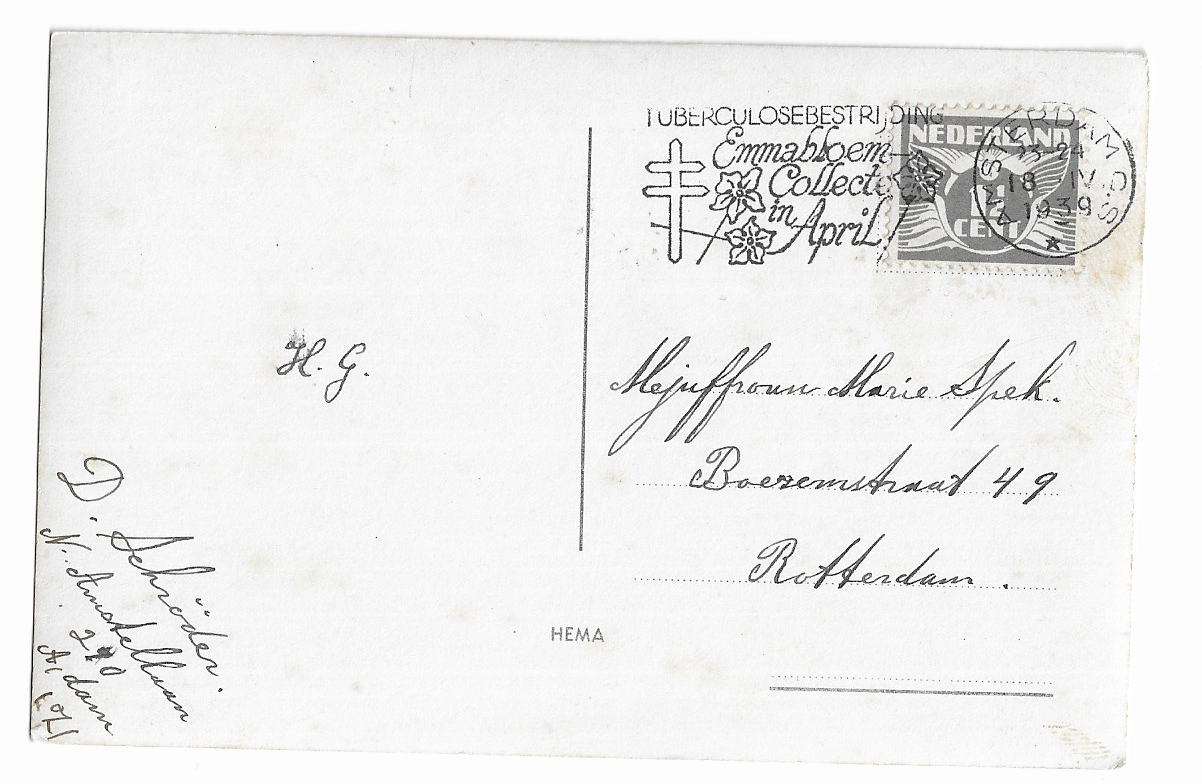 TUBERCULOSEBESTRIJDING
Emmabloem-
Collecte
in
April
NEDERLAND
1½
CENT
AMSTERDAM C.S
23-24
18 IV
1939
H. G.
Mejuffrouw Marie Spek.
Boezemstraat 49
Rotterdam.
D. Schröder.
N. Amstellaan
A'dam
HEMA